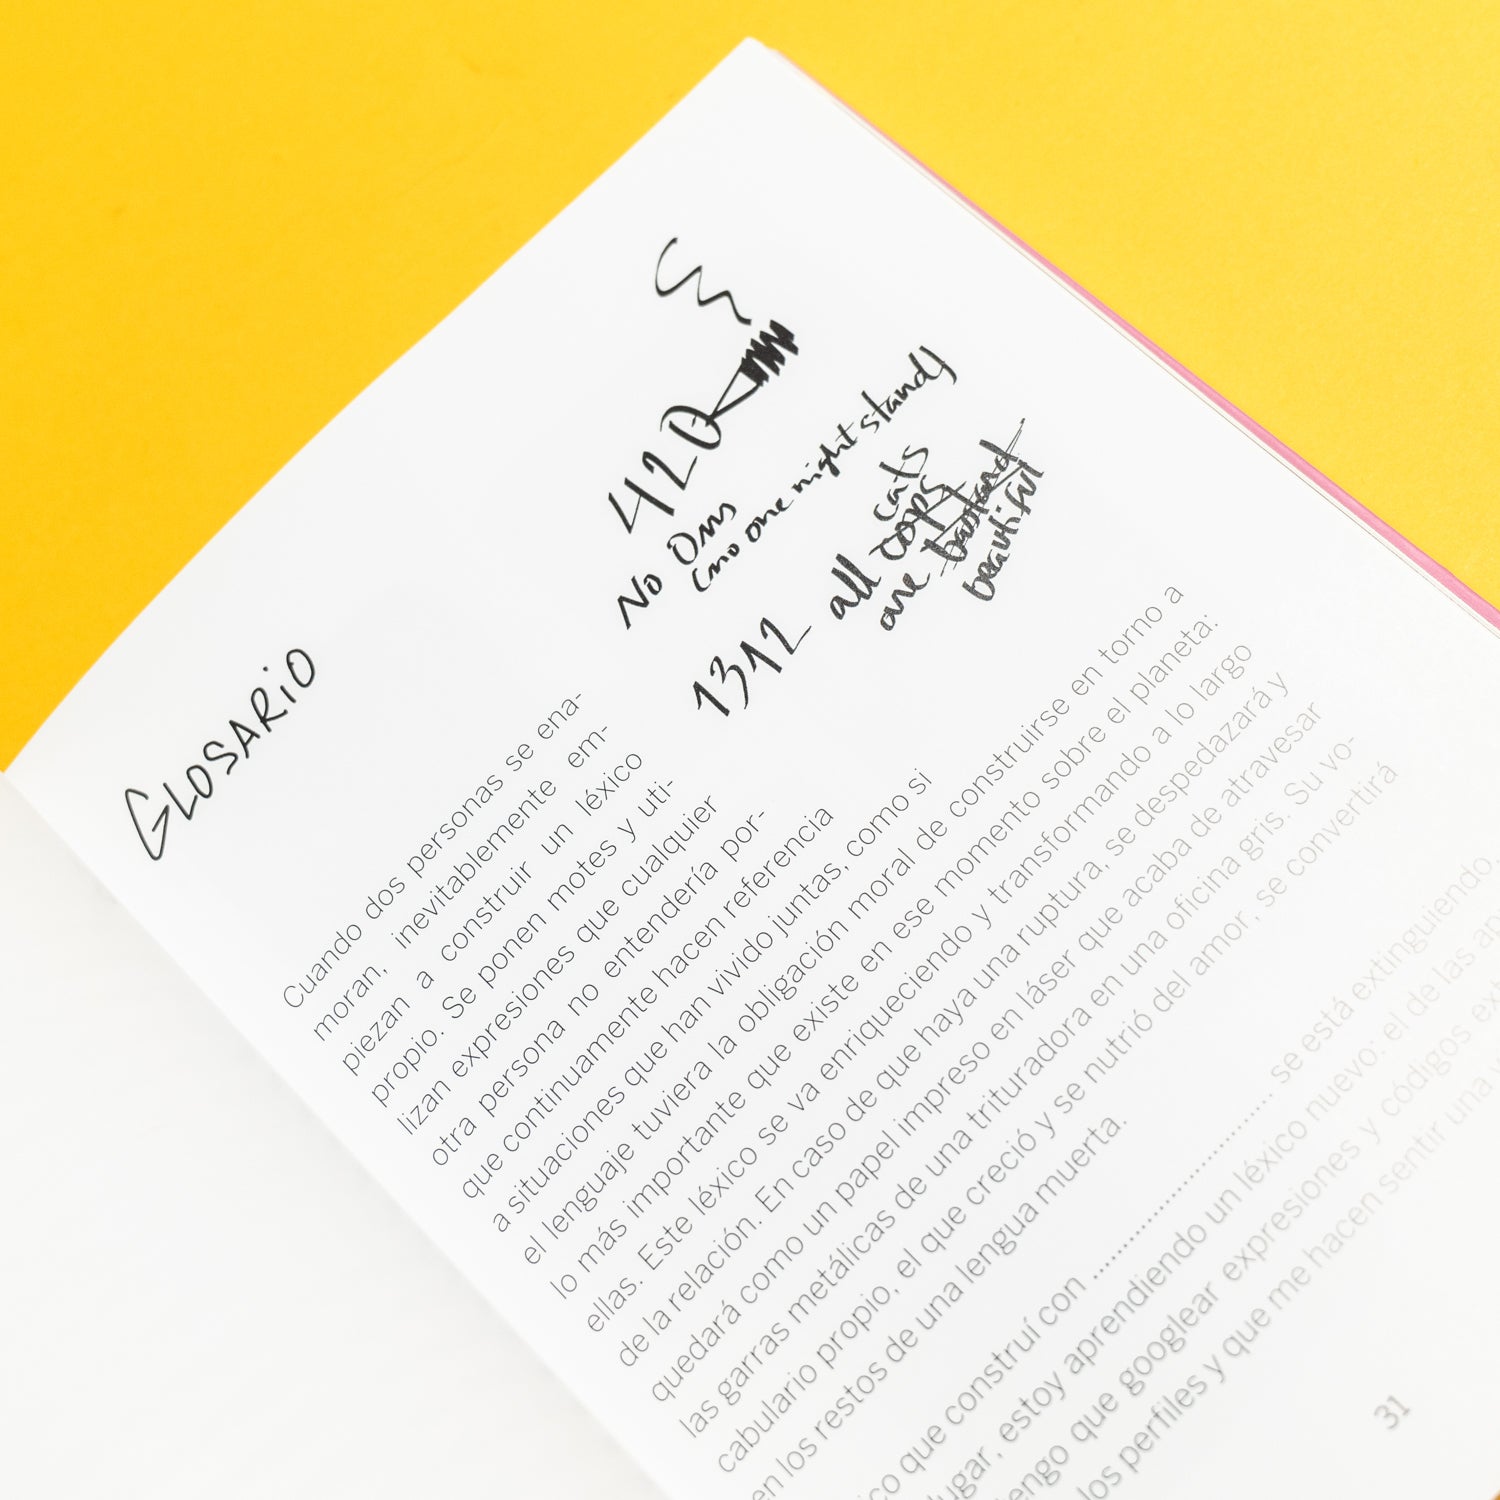 GLOSARIO
420
No Ons
(no one night stands)
1312 all cops cats
are bastard
beautiful
Cuando dos personas se ena-
moran, inevitablemente em-
piezan a construir un léxico
propio. Se ponen motes y uti-
lizan expresiones que cualquier
otra persona no entendería por-
que continuamente hacen referencia
a situaciones que han vivido juntas, como si
el lenguaje tuviera la obligación moral de construirse en torno a
lo más importante que existe en ese momento sobre el planeta:
ellas. Este léxico se va enriqueciendo y transformando a lo largo
de la relación. En caso de que haya una ruptura, se despedazará y
quedará como un papel impreso en láser que acaba de atravesar
las garras metálicas de una trituradora en una oficina gris. Su vo-
cabulario propio, el que creció y se nutrió del amor, se convertirá
en los restos de una lengua muerta.
que construí con .............................. se está extinguiendo.
estoy aprendiendo un léxico nuevo: el de las
que googlear expresiones y códigos
los perfiles y que me hacen sentir una
31